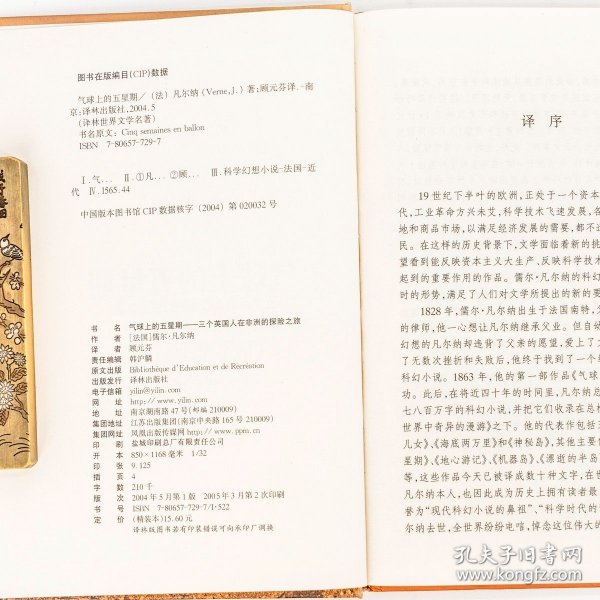 图书在版编目(CIP)数据
气球上的五星期/(法)凡尔纳(Verne,J.)著;顾元芬译.-南
京:译林出版社,2004.5
(译林世界文学名著)
书名原文:Cinq semaines en ballon
ISBN 7-80657-729-7
Ⅰ.气… Ⅱ.①凡…②顾… Ⅲ.科学幻想小说-法国-近
代 Ⅳ.1565.44
中国版本图书馆CIP数据核字(2004)第020032号
书 名 气球上的五星期——三个英国人在非洲的探险之旅
作 者 [法国]儒尔·凡尔纳
译 者 顾元芬
责任编辑 韩沪麟
原文出版 Bibliothèque d'Education et de Récréation
出版发行 译林出版社
电子信箱 yilin@yilin.com
网 址 http://www.yilin.com
地 址 南京湖南路47号(邮编210009)
集团地址 江苏出版集团(南京中央路165号210009)
集团网址 凤凰出版传媒网http://www.ppm.cn
印 刷 盐城印刷总厂有限责任公司
开 本 850×1168毫米 1/32
印 张 9.125
插 页 4
字 数 210千
版 次 2004年5月第1版 2005年3月第2次印刷
书 号 ISBN 7-80657-729-7/I·522
定 价 (精装本)15.60元
译林版图书若有印装错误可向承印厂调换
译 序
19世纪下半叶的欧洲,正处于一个资本
代,工业革命方兴未艾,科学技术飞速发展,各
地和商品市场,以满足经济发展的需要,都不过
民。在这样的历史背景下,文学面临着新的挑
望看到能反映资本主义大生产、反映科学技术
起到的重要作用的作品。儒尔·凡尔纳的科幻
时的形势,满足了人们对文学所提出的新的要
1828年,儒尔·凡尔纳出生于法国南特,父
的律师,他一心想让凡尔纳继承父业。但自幼
幻想的凡尔纳却违背了父亲的愿望,爱上了文
了无数次挫折和失败后,他终于找到了一个
科幻小说。1863年,他的第一部作品《气球
功。此后,在将近四十年的时间里,凡尔纳总
七八百万字的科幻小说,并把它们收录在总标
世界中奇异的漫游》之下。他的代表作包括三
儿女》、《海底两万里》和《神秘岛》,其他主要作
星期》、《地心游记》、《机器岛》、《漂逝的半岛
等,这些作品今天已被译成数十种文字,在世
凡尔纳本人,也因此成为历史上拥有读者最
誉为“现代科幻小说的鼻祖”、“科学时代的
尔纳去世,全世界纷纷电唁,悼念这位伟大的
孔夫子旧书网
www.kongfz.com